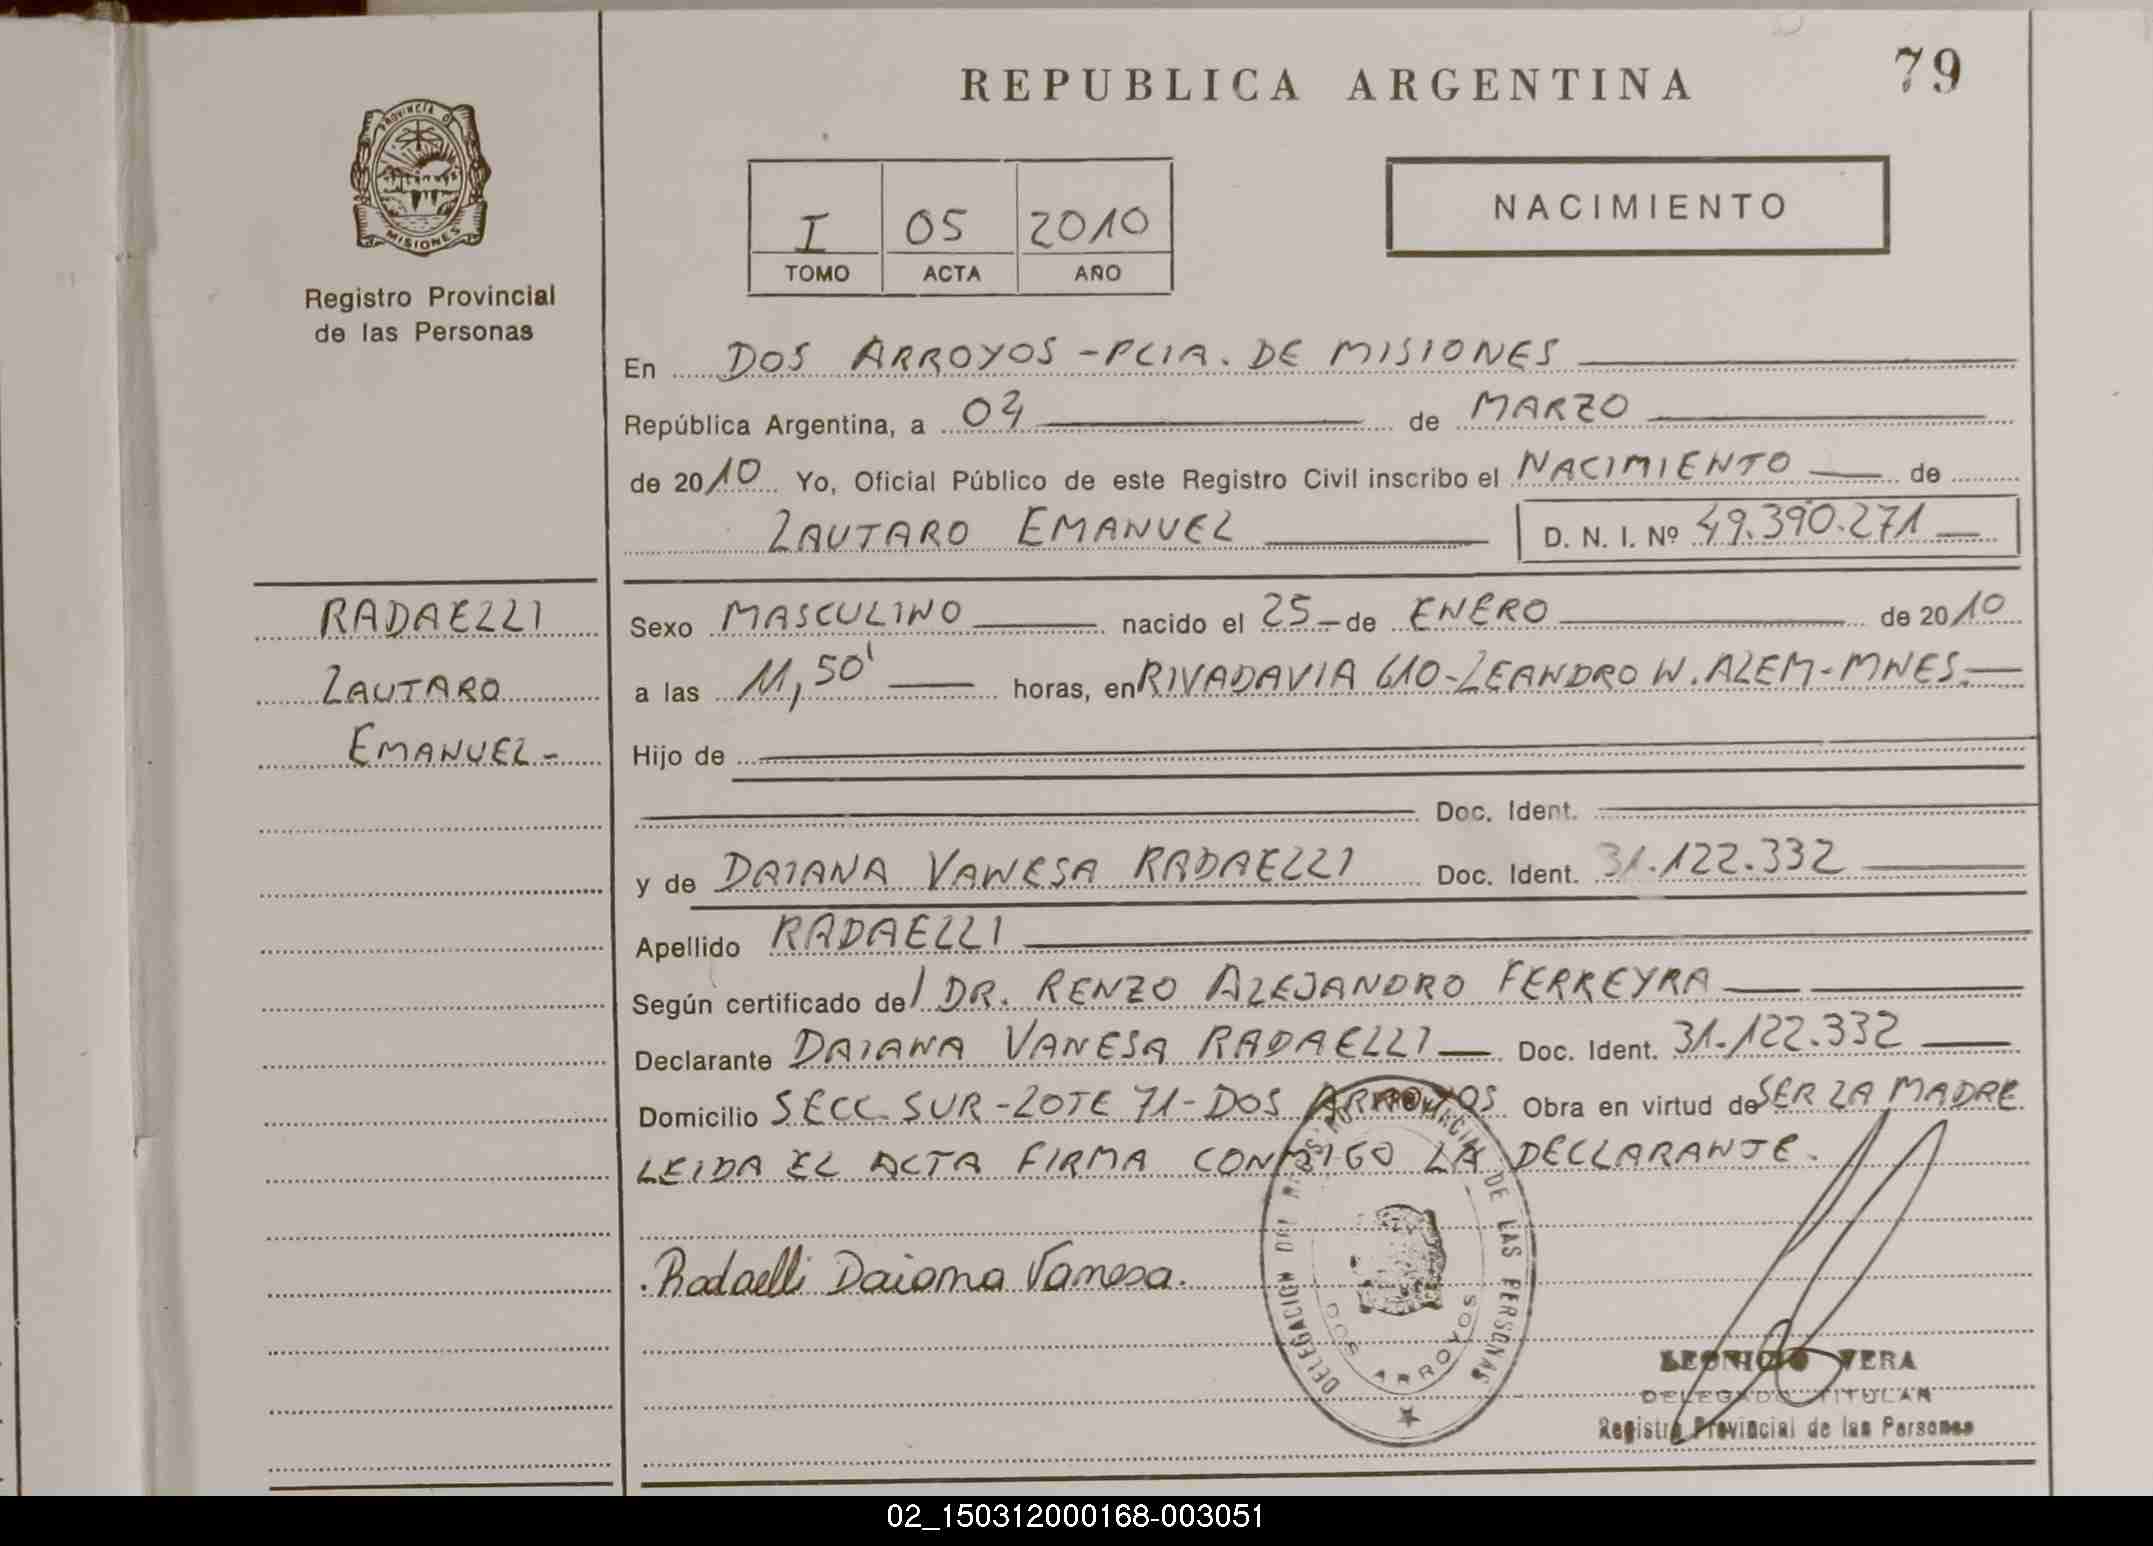 REPUBLICA ARGENTINA
79
PROVINCIA DE
MISIONES
Registro Provincial
de las Personas
I 05 2010
TOMO ACTA AÑO
NACIMIENTO
En DOS ARROYOS - PCIA. DE MISIONES
República Argentina, a 04 de MARZO
de 2010 Yo, Oficial Público de este Registro Civil inscribo el NACIMIENTO de
LAUTARO EMANUEL D. N. I. Nº 49.390.271
RADAELLI
LAUTARO
EMANUEL-
Sexo MASCULINO nacido el 25 de ENERO de 2010
a las 11,50' horas, en RIVADAVIA 610-LEANDRO N. ALEM-MNES.
Hijo de
Doc. Ident.
y de DAIANA VANESA RADAELLI Doc. Ident. 31.122.332
Apellido RADAELLI
Según certificado de/ DR. RENZO ALEJANDRO FERREYRA
Declarante DAIANA VANESA RADAELLI Doc. Ident. 31.122.332
Domicilio SECC. SUR-LOTE 71-DOS ARROYOS Obra en virtud de SER LA MADRE
LEIDA EL ACTA FIRMA CONMIGO LA DECLARANTE.
Radaelli Daiana Vanesa.
DELEGACION DEL REGISTRO PROVINCIAL DE LAS PERSONAS
DOS ARROYOS
VERA
DELEGADO TITULAR
Registro Provincial de las Personas
02_150312000168-003051